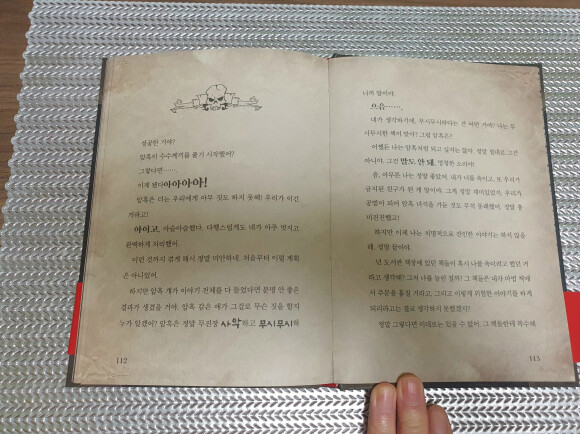 성공한 거야?
암흑이 수수께끼를 풀기 시작했어?
그렇다면……,
이제 됐다아아아아!
암흑은 더는 우리에게 아무 짓도 하지 못해! 우리가 이긴
거라고!
아이고, 아슬아슬했다. 다행스럽게도 내가 아주 멋지고
완벽하게 처리했어.
이런 것까지 겪게 해서 정말 미안하네, 처음부터 이럴 계획
은 아니었어.
하지만 암흑 걔가 이야기 전체를 다 들었더라면 분명 안 좋은
결과가 생겼을 거야. 암흑 같은 애가 그걸로 무슨 짓을 할지
누가 알겠어? 암흑은 정말 무진장 사악하고 무시무시하
112
니까 말이야.
으음…….
네가 생각하기에, 무시무시하다는 건 어떤 거야? 나는 무
시무시한 책이 맞아? 그럼 암흑은?
어쨌든 나는 암흑처럼 되고 싶지는 않아. 정말 절대로 그건
아니야. 그건 말도 안 돼, 멍청한 소리야!
음, 아무튼 나는 정말 좋았어. 내가 너를 속이고, 또 우리가
금지된 친구가 된 게 말이야. 그게 정말 재미있었지. 우리가
공범이 되어 암흑 녀석을 가둔 것도 무척 통쾌했어. 정말 흥
미진진했고!
하지만 이제 나는 치명적으로 잔인한 이야기는 하지 않을
래. 정말 끝이야.
넌 도서관 책장에 있던 책들이 혹시 나를 속이려고 했던 거
라고 생각해? 그저 나를 놀린 걸까? 그 책들은 내가 마법 책에
서 주문을 훔칠 거라고, 그리고 이렇게 위험한 이야기를 하게
되리라고는 절대로 생각하지 못했겠지?
정말 그렇다면 이대로는 있을 수 없어. 그 책들한테 복수해
113